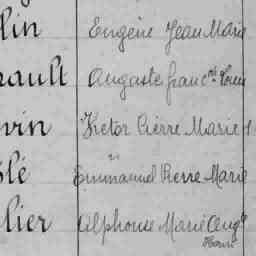 lin Eugène Jean Marie
rault Auguste Franc Louis
vin Victor Pierre Marie
lé Emmanuel Pierre Marie
llier Alphonse Marie Aug
Henri